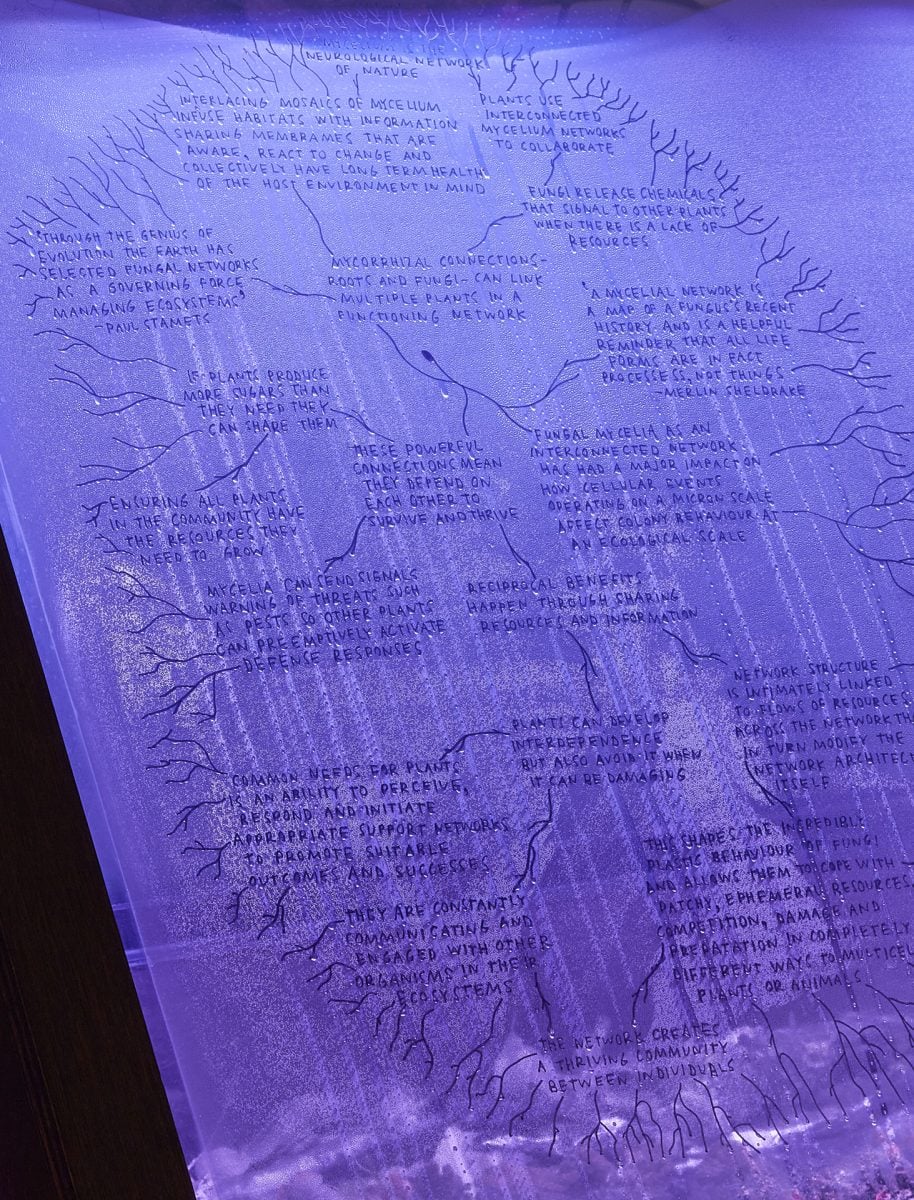 MYCELIUM IS THE
NEUROLOGICAL NETWORK
OF NATURE
INTERLACING MOSAICS OF MYCELIUM
INFUSE HABITATS WITH INFORMATION
SHARING MEMBRAMES THAT ARE
AWARE, REACT TO CHANGE AND
COLLECTIVELY HAVE LONG TERM HEALTH
OF THE HOST ENVIRONMENT IN MIND
PLANTS USE
INTERCONNECTED
MYCELIUM NETWORKS
TO COLLABORATE
FUNGI RELEASE CHEMICALS
THAT SIGNAL TO OTHER PLANTS
WHEN THERE IS A LACK OF
RESOURCES
"THROUGH THE GENIUS OF
EVOLUTION THE EARTH HAS
SELECTED FUNGAL NETWORKS
AS A GOVERNING FORCE
MANAGING ECOSYSTEMS"
-PAUL STAMETS
MYCORRHIZAL CONNECTIONS-
ROOTS AND FUNGI- CAN LINK
MULTIPLE PLANTS IN A
FUNCTIONING NETWORK
"A MYCELIAL NETWORK IS
A MAP OF A FUNGUS'S RECENT
HISTORY AND IS A HELPFUL
REMINDER THAT ALL LIFE
FORMS ARE IN FACT
PROCESSESS, NOT THINGS
-MERLIN SHELDRAKE
IF PLANTS PRODUCE
MORE SUGARS THAN
THEY NEED THEY
CAN SHARE THEM
THESE POWERFUL
CONNECTIONS MEAN
THEY DEPEND ON
EACH OTHER TO
SURVIVE AND THRIVE
FUNGAL MYCELIA AS AN
INTERCONNECTED NETWORK
HAS HAD A MAJOR IMPACT ON
HOW CELLULAR EVENTS
OPERATING ON A MICRON SCALE
AFFECT COLONY BEHAVIOUR AT
AN ECOLOGICAL SCALE
ENSURING ALL PLANTS
IN THE COMMUNITY HAVE
THE RESOURCES THEY
NEED TO GROW
MYCELIA CAN SEND SIGNALS
WARNING OF THREATS SUCH
AS PESTS SO OTHER PLANTS
CAN PREEMPTIVELY ACTIVATE
DEFENSE RESPONSES
RECIPROCAL BENEFITS
HAPPEN THROUGH SHARING
RESOURCES AND INFORMATION
NETWORK STRUCTURE
IS INTIMATELY LINKED
TO FLOWS OF RESOURCES
ACROSS THE NETWORK TH
IN TURN MODIFY THE
NETWORK ARCHITEC
ITSELF
PLANTS CAN DEVELOP
INTERDEPENDENCE
BUT ALSO AVOID IT WHEN
IT CAN BE DAMAGING
COMMON NEEDS FOR PLANTS
IS AN ABILITY TO PERCEIVE,
RESPOND AND INITIATE
APPROPRIATE SUPPORT NETWORKS
TO PROMOTE SUITABLE
OUTCOMES AND SUCCESSES
THIS SHAPES THE INCREDIBLE
PLASTIC BEHAVIOUR OF FUNGI
AND ALLOWS THEM TO COPE WITH
PATCHY, EPHEMERAL RESOURCES,
COMPETITION, DAMAGE AND
PREDATATION IN COMPLETELY
DIFFERENT WAYS TO MULTICEL
PLANTS OR ANIMALS
THEY ARE CONSTANTLY
COMMUNICATING AND
ENGAGED WITH OTHER
ORGANISMS IN THEIR
ECOSYSTEMS
THE NETWORK CREATES
A THRIVING COMMUNITY
BETWEEN INDIVIDUALS